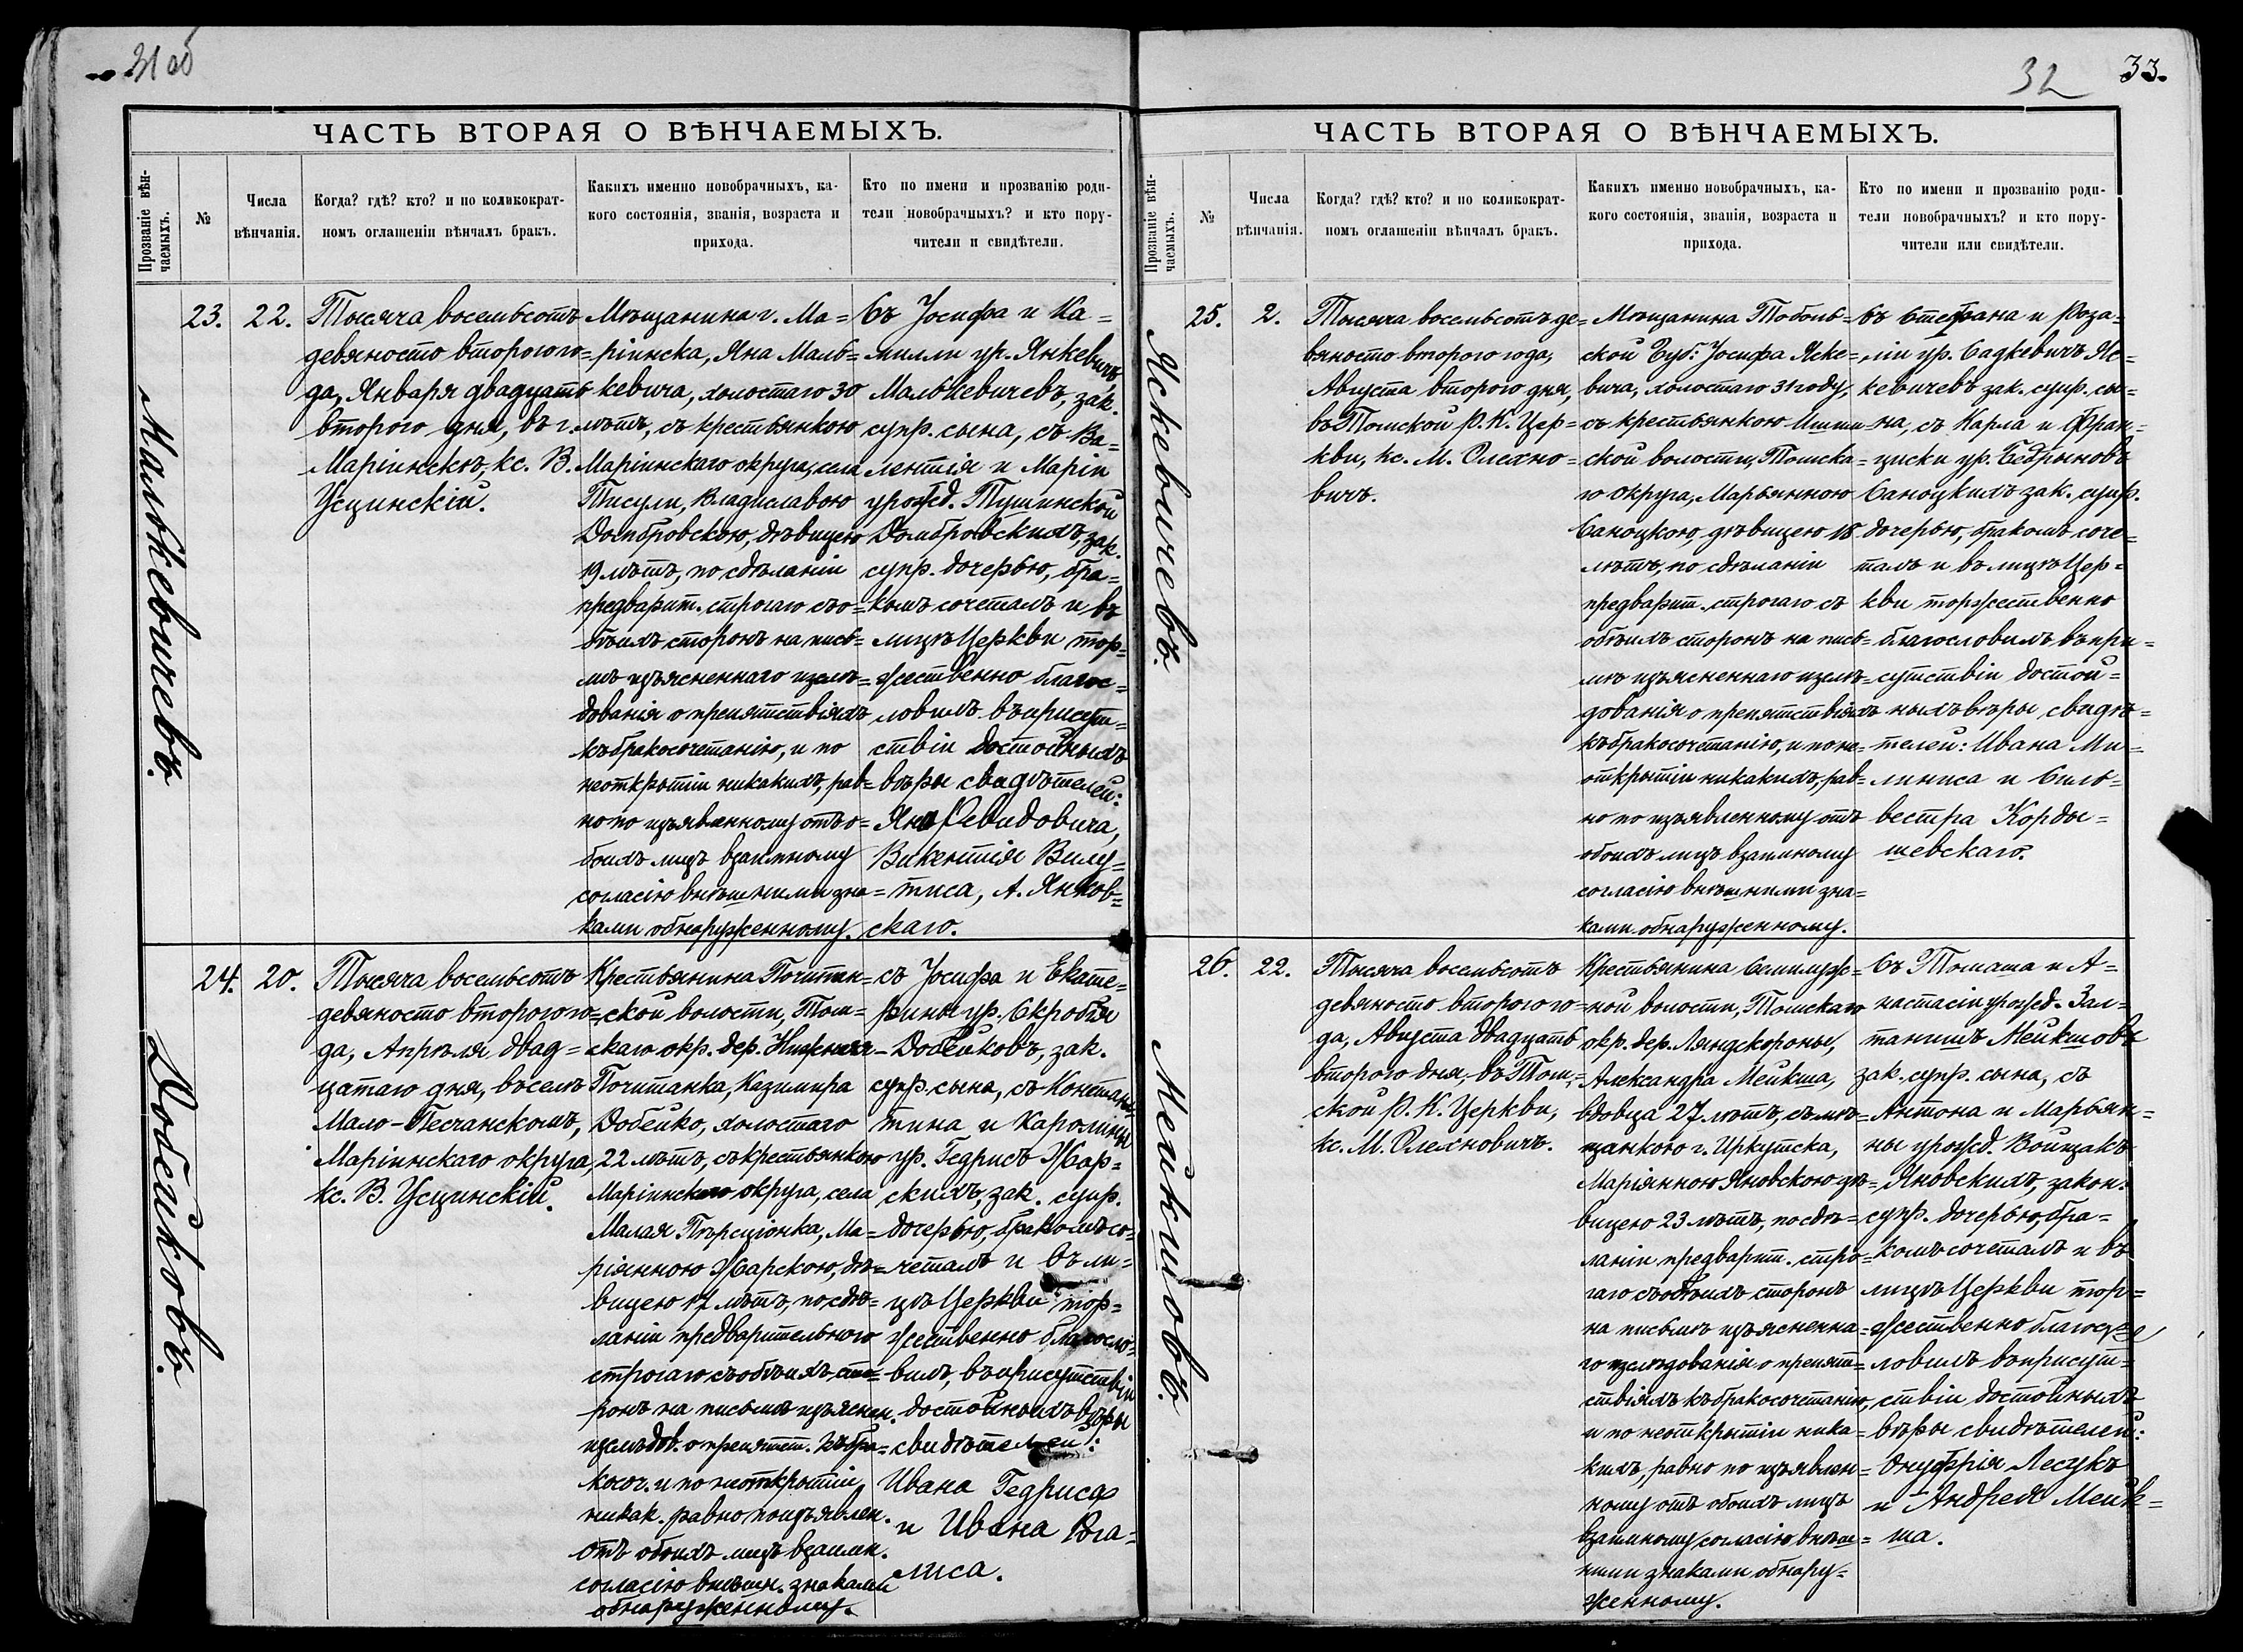 31 об
ЧАСТЬ ВТОРАЯ О ВѢНЧАЕМЫХЪ.
Прозваніе вѣн-
чаемыхъ.
№
Числа
вѣнчанія.
Когда? гдѣ? кто? и по коликократ-
номъ оглашеніи вѣнчалъ бракъ.
Какихъ именно новобрачныхъ, ка-
кого состоянія, званія, возраста и
прихода.
Кто по имени и прозванію роди-
тели новобрачныхъ? и кто пору-
чители и свидѣтели.
Малькевичевъ.
23.
22.
Тысяча восемьсотъ
девяносто второго го=
да, Января двадцать
второго дня, въ г.
Маріинскѣ, кс. В.
Усцинскій.
Мѣщанина г. Ма=
ріинска, Яна Маль=
кевича, холостаго 30
лѣтъ, съ крестьянкою
Маріинскаго округа, села
Тисули, Владиславою
Домбровскою, дѣвицею
19 лѣтъ, по сдѣланіи
предварит. строгаго съ о=
бѣихъ сторонъ на пись=
мѣ изъясненнаго изслѣ=
дованія о препятствіяхъ
къ бракосочетанію, и по
неоткрытіи никакихъ, рав=
но по изъявленному отъ о=
боихъ лицъ взаимному
согласію внѣшними зна=
ками обнаруженному.
Съ Іосифа и Ка=
милли ур. Янкевичъ
Малькевичевъ, зак.
супр. сына, съ Ва=
лентія и Маріи
урожд. Тушинской
Домбровскихъ, зак.
супр. дочерью, бра=
комъ сочеталъ и въ
лицѣ Церкви тор=
жественно благос=
ловилъ въ присут=
ствіи достойныхъ
вѣры свидѣтелей:
Яна Ревидовича,
Викентія Вилу=
тиса, А. Янков=
скаго.
Добейковъ.
24.
20.
Тысяча восемьсотъ
девяносто второго го=
да, Апрѣля двад=
цатаго дня, въ селѣ
Мало-Песчанскомъ,
Маріинскаго округа,
кс. В. Усцинскій.
Крестьянина Почитан=
ской волости, Том=
скаго окр. дер. Нижняя
Почитанка, Казимира
Добейко, холостаго
22 лѣтъ, съ крестьянкою
Маріинскаго округа, села
Малая Пѣрсціонка, Ма=
ріянною Жарскою, дѣ=
вицею 17 лѣтъ, по сдѣ=
ланіи предварительного
строгаго съ обѣихъ сто=
ронъ на письмѣ изъяснен.
изслѣдов. о препятст. къ бра=
косоч. и по неоткрытіи
никак. равно по изъявлен.
отъ обоихъ лицъ взаимн.
согласію внѣшн. знаками
обнаруженному.
съ Іосифа и Екате=
рины ур. Скробля
Добейковъ, зак.
супр. сына, съ Констан=
тина и Каролины
ур. Гедрисъ Жар=
скихъ, зак. супр.
дочерью, бракомъ со=
четалъ и въ ли=
цѣ Церкви тор=
жественно благосло=
вилъ, въ присутствіи
достойныхъ вѣры
свидѣтелей:
Ивана Гедриса
и Ивана Рога=
лиса.
32
33.
ЧАСТЬ ВТОРАЯ О ВѢНЧАЕМЫХЪ.
Прозваніе вѣн-
чаемыхъ.
№
Числа
вѣнчанія.
Когда? гдѣ? кто? и по коликократ-
номъ оглашеніи вѣнчалъ бракъ.
Какихъ именно новобрачныхъ, ка-
кого состоянія, званія, возраста и
прихода.
Кто по имени и прозванію роди-
тели новобрачныхъ? и кто пору-
чители или свидѣтели.
Яскевичевъ.
25.
2.
Тысяча восемьсотъ де=
вяносто второго года,
Августа второго дня,
въ Томской Р. К. Цер=
кви, кс. М. Олехно=
вичъ.
Мѣщанина Тоболь=
ской Губ: Іосифа Яске=
вича, холостаго 31 году,
съ крестьянкою Ишим=
ской волости, Томска=
го округа, Марьянною
Саноцкою, дѣвицею 18
лѣтъ, по сдѣланіи
предварит. строгаго съ
обѣихъ сторонъ на пись=
мѣ изъясненнаго изслѣ=
дованія о препятствіяхъ
къ бракосочетанію, и по не=
открытіи никакихъ, рав=
но по изъявленному отъ
обоихъ лицъ взаимному
согласію внѣшними зна=
ками обнаруженному.
Съ Стефана и Роза=
ліи ур. Садкевичъ Яс=
кевичевъ зак. супр. сы=
на, съ Карла и Фран=
циски ур. Бедрыновъ
Саноцкихъ зак. супр.
дочерью, бракомъ соче=
талъ и въ лицѣ Цер=
кви торжественно
благословилъ въ при=
сутствіи достой=
ныхъ вѣры свидѣ=
телей: Ивана Ми=
лниса и Силь=
вестра Корды=
шевскаго.
Мейкшовъ.
26.
22.
Тысяча восемьсотъ
девяносто второго го=
да, Августа двадцать
второго дня, въ Том=
ской Р. К. Церкви,
кс. М. Олехновичъ.
Крестьянина Семилуж=
ной волости, Томскаго
окр. дер. Ляндскороны,
Александра Мейкша,
вдовца 27 лѣтъ, съ мѣ=
щанкою г. Иркутска,
Маріянною Яновскою дѣ=
вицею 23 лѣтъ, по сдѣ=
ланіи предварит. стро=
гаго съ обѣихъ сторонъ
на письмѣ изъясненна=
го изслѣдованія о препят=
ствіяхъ къ бракосочетанію,
и по неоткрытіи ника=
кихъ, равно по изъявлен=
ному отъ обоихъ лицъ
взаимному согласію внѣш=
ними знаками обнару=
женному.
Съ Томаша и А=
настасіи урожд. Зал=
танишъ Мейкшовъ
зак. супр. сына, съ
Антона и Марьян=
ны урожд. Войцзакъ
Яновскихъ, закон.
супр. дочерью, бра=
комъ сочеталъ и въ
лицѣ Церкви тор=
жественно благос=
ловилъ въ присут=
ствіи достойныхъ
вѣры свидѣтелей:
Онуфрія Лесукъ
и Андрея Мейк=
ша.